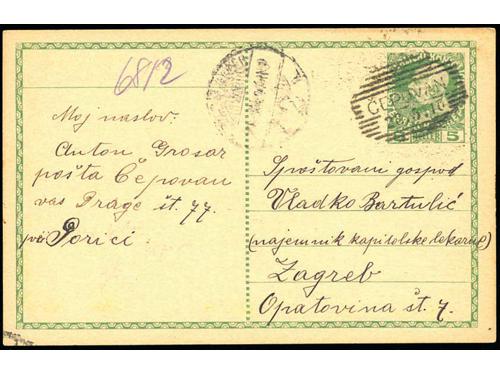 6812
ČEPOVAN
5 5
Moj naslov:
Anton Grosar
pošta Čepovan
vas Drage št. 77.
pri Gorici
Spoštovani gospod
Vladko Bartulić
(najemnik kapitolske lekarne)
Zagreb
Opatovina št. 7.